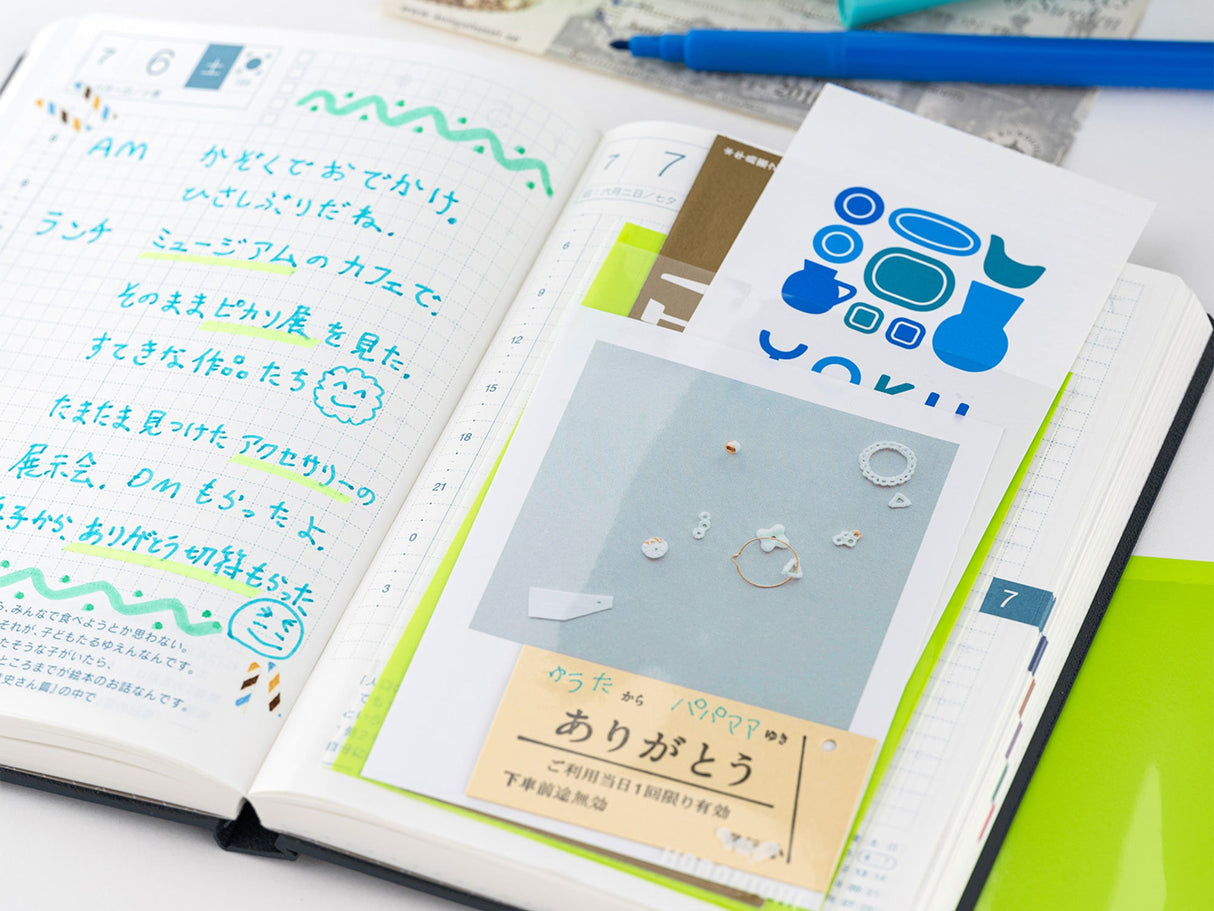 7 6 土
AM かぞくでおでかけ。
ひさしぶりだね.
ランチ ミュージアムのカフェで.
そのままピカソ展を見た.
すてきな作品たち
たまたま見つけたアクセサリーの
展示会. DMもらったよ.
子から、ありがとう切符もらった
みんなで食べようとか思わない。
それが、子どもたるゆえんなんです。
たそうな子がいたら、
ところまでが絵本のお話なんです。
史さん篇』の中で
7 7
六月二日/七夕
6
9
12
15
18
21
0
3
YOKU
ゆうたから パパママゆき
ありがとう
ご利用当日1回限り有効
下車前途無効
7